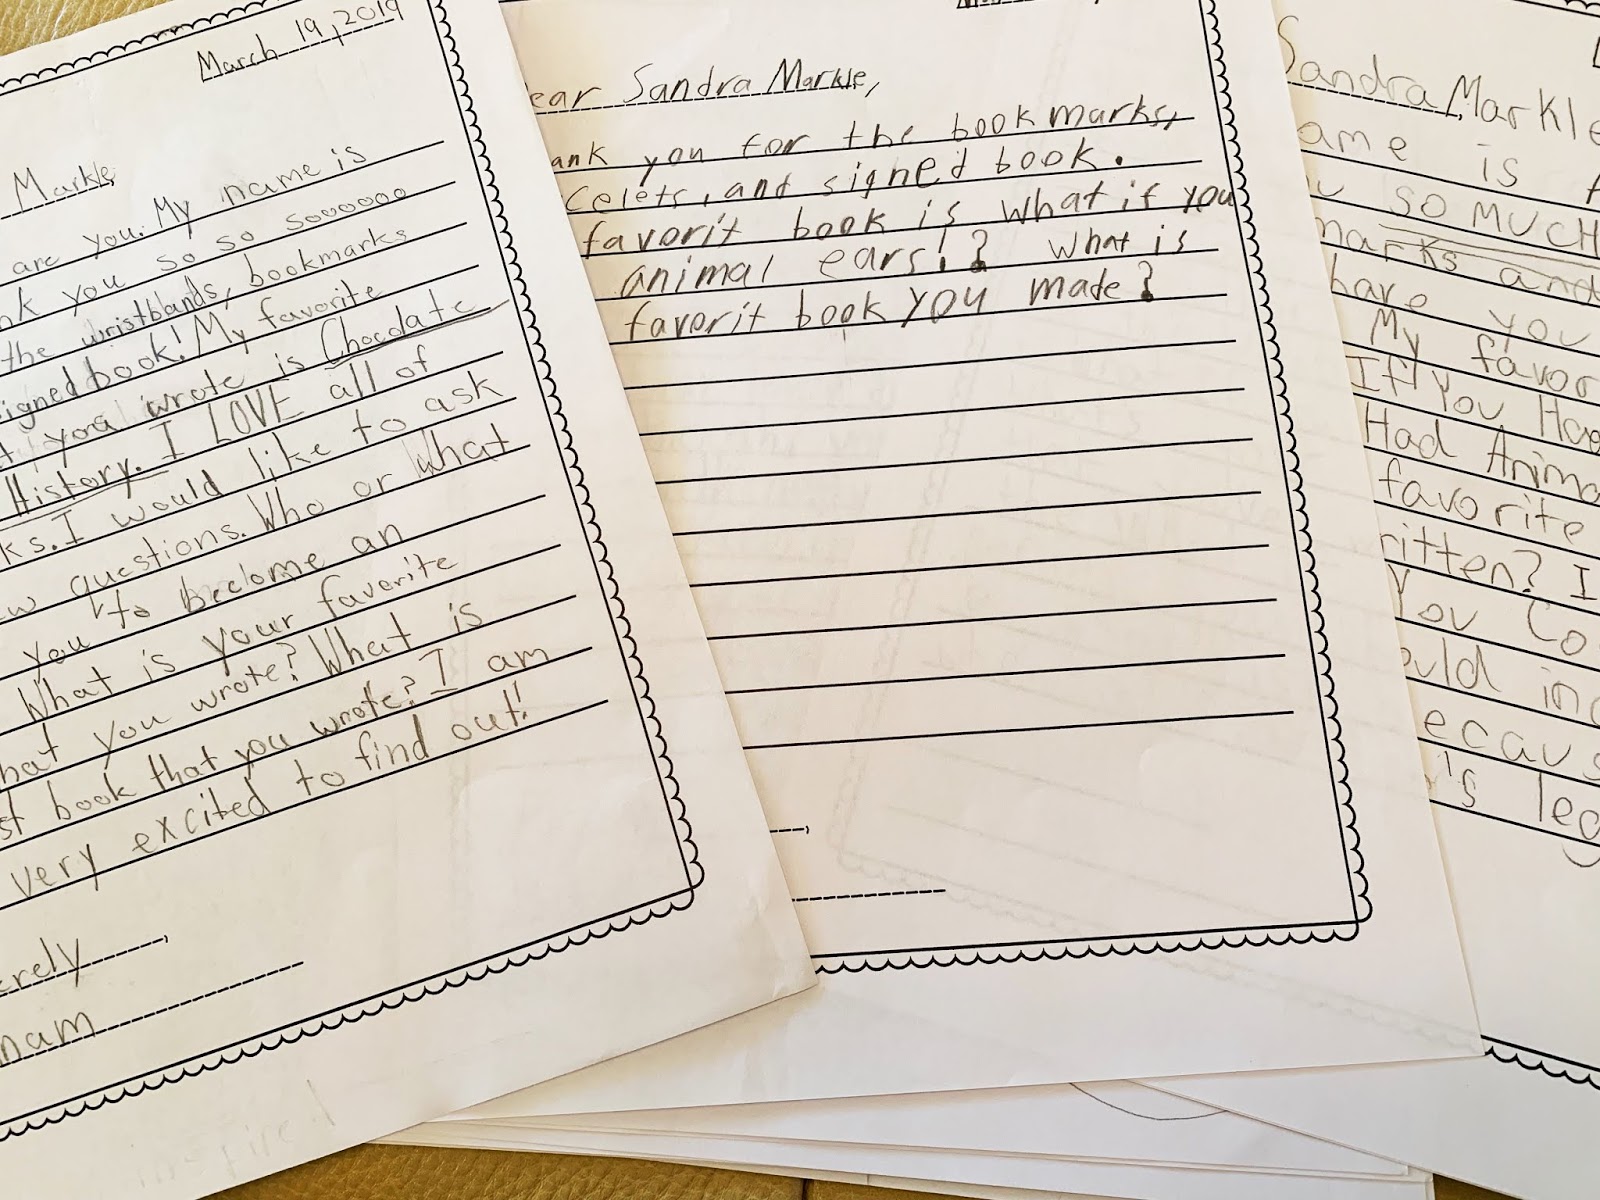 March 19, 2019
Markle,
are you. My name is
nk you so so sooooooo
the wristbands, bookmarks
signed book! My favorite
t you wrote is Chocolate
History. I LOVE all of
ks. I would like to ask
w questions. Who or what
you to become an
What is your favorite
hat you wrote? What is
st book that you wrote? I am
very excited to find out!
erely
nam
ear Sandra Markle,
ank you for the bookmarks,
celets, and signed book.
favorit book is What if you
animal ears!? What is
favorit book you made?
Sandra Markle
ame is
u SO MUCH
marks and
have you
My favor
If You Had
Had Anima
favorite
ritten? I
You Co
ould inc
ecaus
's leg